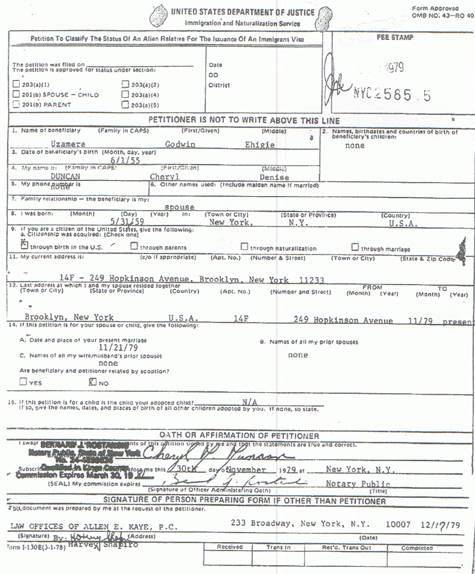 UNITED STATES DEPARTMENT OF JUSTICE
Immigration and Naturalization Service
Form Approved
OMB NO. 43-RO
Petition To Classify The Status Of An Alien Relative For The Issuance Of An Immigrant Visa
FEE STAMP
The petition was filed on
The petition is approved for status under section:
203(a)(1) 203(a)(2)
201(b) SPOUSE - CHILD 203(a)(4)
201(b) PARENT 203(a)(5)
Date
DD
District
1979
NYC 2565
PETITIONER IS NOT TO WRITE ABOVE THIS LINE
1. Name of beneficiary (Family in CAPS) (First/Given) (Middle)
Uzamere Godwin Ehigie
2. Names, birthdates and countries of birth of beneficiary's children:
none
3. Date of beneficiary's birth (Month, day, year)
6/1/55
4. My name is: (Family in CAPS) (First/Given) (Middle)
DUNCAN Cheryl Denise
5. My phone number is
none
6. Other names used: (Include maiden name if married)
7. Family relationship - the beneficiary is my:
spouse
8. I was born: (Month) (Day) (Year) in: (Town or City) (State or Province) (Country)
5/31/59 New York, N.Y. U.S.A.
9. If you are a citizen of the United States, give the following:
a. Citizenship was acquired: (Check one)
through birth in the U.S. through parents through naturalization through marriage
11. My current address is: (c/o if appropriate) (Apt. No.) (Number and Street) (Town or City) (State & Zip Code)
14F - 249 Hopkinson Avenue, Brooklyn, New York 11233
Last address at which I and my spouse resided together FROM TO
(Town or City) (State or Province) (Country) (Apt. No.) (Number and Street) (Month) (Year) (Month) (Year)
Brooklyn, New York U.S.A. 14F 249 Hopkinson Avenue 11/79 present
14. If this petition is for your spouse or child, give the following:
A. Date and place of your present marriage
11/21/79
B. Names of all my prior spouses
none
C. Names of all my wife/husband's prior spouses
none
Are beneficiary and petitioner related by adoption?
YES X NO
15. If this petition is for a child is the child your adopted child? N/A
If so, give the names, dates, and places of birth of all other children adopted by you. If none, so state.
OATH OR AFFIRMATION OF PETITIONER
I swear of this petition signed by me and that the statements are true and correct.
Notary Public, State of New York
Qualified in Kings County
Commission Expires March 30, 19
Subscribed before me this 30th day of November 1979, at New York, N.Y.
Notary Public
(SEAL) My commission expires (Signature of Officer Administering Oath) (Title)
SIGNATURE OF PERSON PREPARING FORM IF OTHER THAN PETITIONER
This document was prepared by me at the request of the petitioner.
LAW OFFICES OF ALLEN E. KAYE, P.C. 233 Broadway, New York, N.Y. 10007 12/17/79
(Signature) By: (Address) (Date)
Harvey Shapiro
Form I-130E(3-1-78)
Received Trans In Ret'd. Trans Out Completed